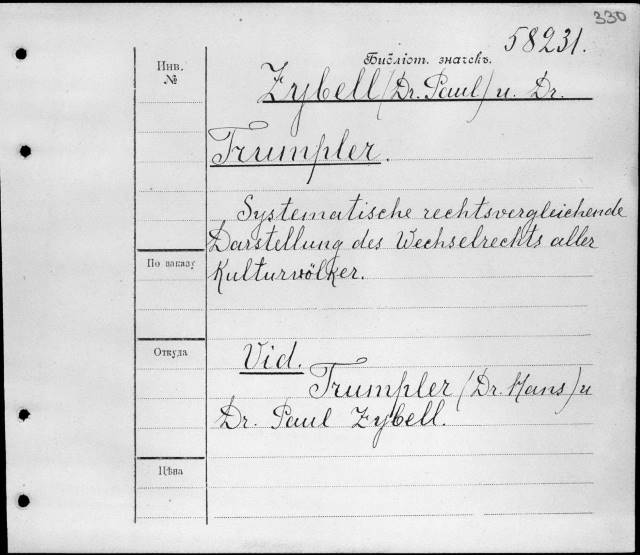 330
58231.
Инв.
№
Библіот. значекъ.
Zybell (Dr. Paul) u. Dr.
Trumpler.
Systematische rechtsvergleichende
Darstellung des Wechselrechts aller
Kulturvölker.
По заказу
Откуда
Vid.
Trumpler (Dr. Hans) u
Dr. Paul Zybell.
Цѣна